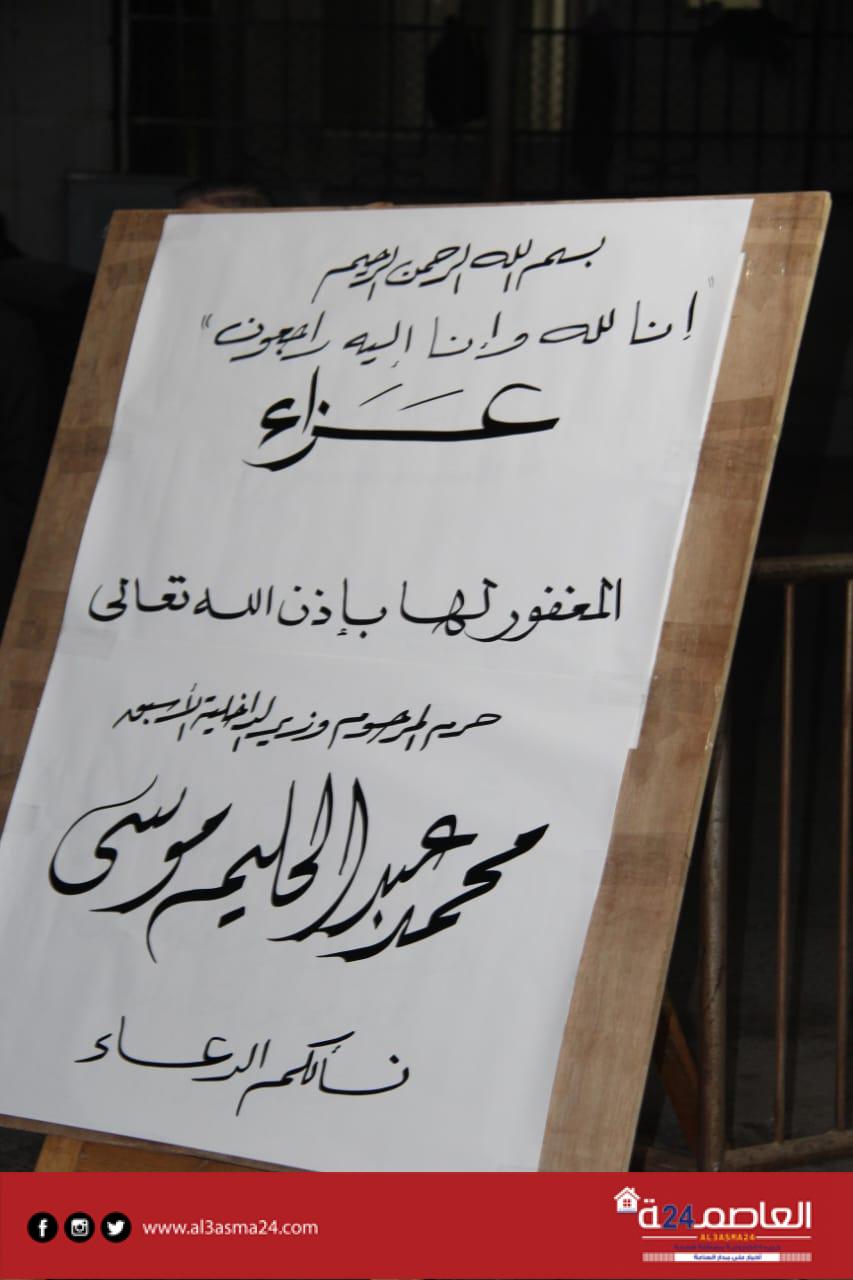 بسم الله الرحمن الرحيم
"إنا لله وإنا إليه راجعون"
عَزَاء
المغفور لها بإذن الله تعالى
حرم المرحوم وزير الداخلية الأسبق
محمد عبد الحليم موسى
نسألكم الدعاء
العاصمة24
AL3ASMA24
www.al3asma24.com